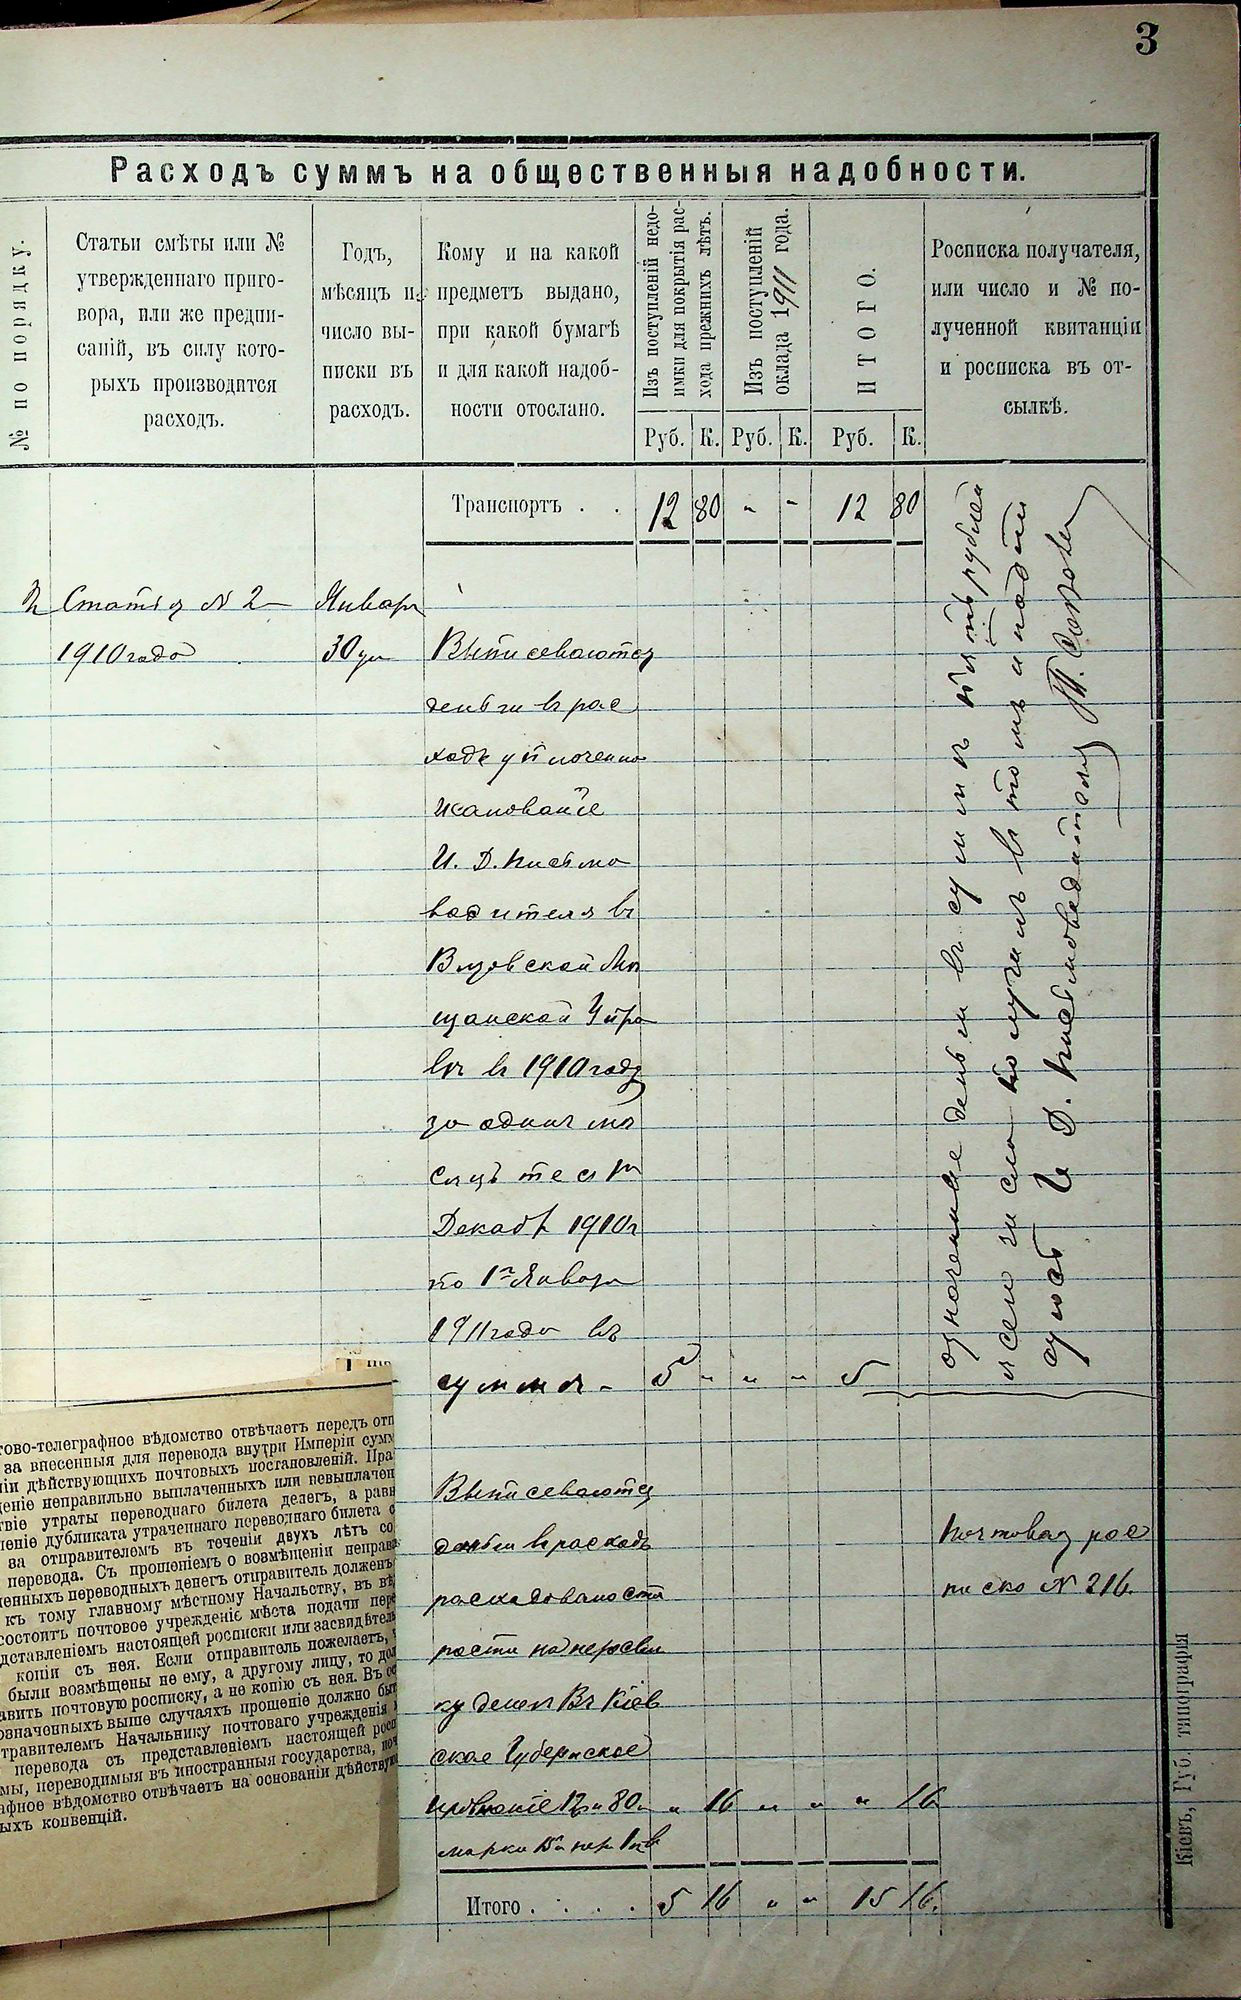 3
Расходъ суммъ на общественныя надобности.
№ по порядку.
Статьи смѣты или №
утвержденнаго приго-
вора, или же предпи-
саній, въ силу кото-
рыхъ производятся
расходъ.
Годъ,
мѣсяцъ и
число вы-
писки въ
расходъ.
Кому и на какой
предметъ выдано,
при какой бумагѣ
и для какой надоб-
ности отослано.
Изъ поступленій недо-
имки для покрытія рас-
хода прежнихъ лѣтъ.
Изъ поступленій
оклада 1911 года.
ИТОГО.
Росписка получателя,
или число и № по-
лученной квитанціи
и росписка въ от-
сылкѣ.
Руб. К. Руб. К. Руб. К.
Транспортъ . . 12 80 - - 12 80
Статья № 2
1910 года
Января
30 дня
Выписеваются
деньги въ рас
ходъ уплочено
жалованіе
И. Д. письмо
водителя въ
ской Мѣ
щанской Упра
вѣ въ 1910 году
за одинъ мѣ
сяцъ
Декаб 1910 г
по 1 Января
1911 года въ
суммѣ - 5 " " " 5
означеные деньги въ суммѣ пять рублей
получилъ въ томъ и подпи
суюсь И Д. письмоводителя
Выписеваются
деньги въ расходъ
на пересыл
ку денегъ въ Кіев
ское Губернское
12 р 80 к " 16 " " " 16
марка 15 к
Почтовая рос
писка № 216.
Итого . . . . 5 16 " " 15 16.
Кіевъ, Губ. типографія
тово-телеграфное вѣдомство отвѣчаетъ передъ отп
за внесенныя для перевода внутри Имперіи сумм
ніи дѣйствующихъ почтовыхъ постановленій. Пра
деніе неправильно выплаченныхъ или невыплачен
твіе утраты переводнаго билета денегъ, а равн
леніе дубликата утраченнаго переводнаго билета с
за отправителемъ въ теченіи двухъ лѣтъ со
перевода. Съ прошеніемъ о возмѣщеніи неправи
ленныхъ переводныхъ денегъ отправитель долженъ
къ тому главному мѣстному Начальству, въ вѣ
состоитъ почтовое учрежденіе мѣста подачи пер
дставленіемъ настоящей росписки или засвидѣтель
копіи съ нея. Если отправитель пожелаетъ,
были возмѣщены не ему, а другому лицу, то дол
авить почтовую росписку, а не копію съ нея. Въ
означенныхъ выше случаяхъ прошеніе должно быт
правителемъ Начальнику почтоваго учрежденія
перевода съ представленіемъ настоящей росп
мы, переводимыя въ иностранныя государства, поч
афное вѣдомство отвѣчаетъ на основаніи дѣйствую
ыхъ конвенцій.